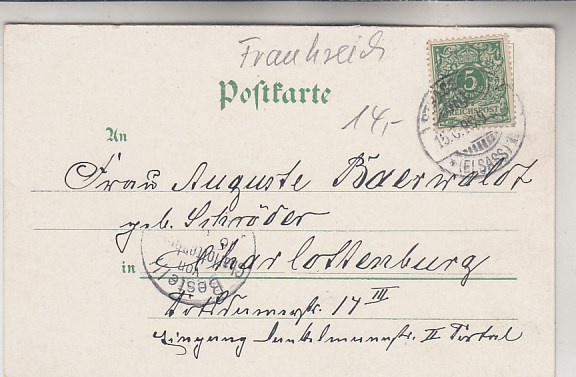 Frankreich
Postkarte
14,-
5
REICHSPOST
15.6.
(ELSASS)
An
Frau Auguste Baerwaldt
geb. Schröder
in Charlottenburg
Bestellt
von
Charlottenburg
Potsdamerstr. 17 III
Eingang Dankelmannstr. II Portal